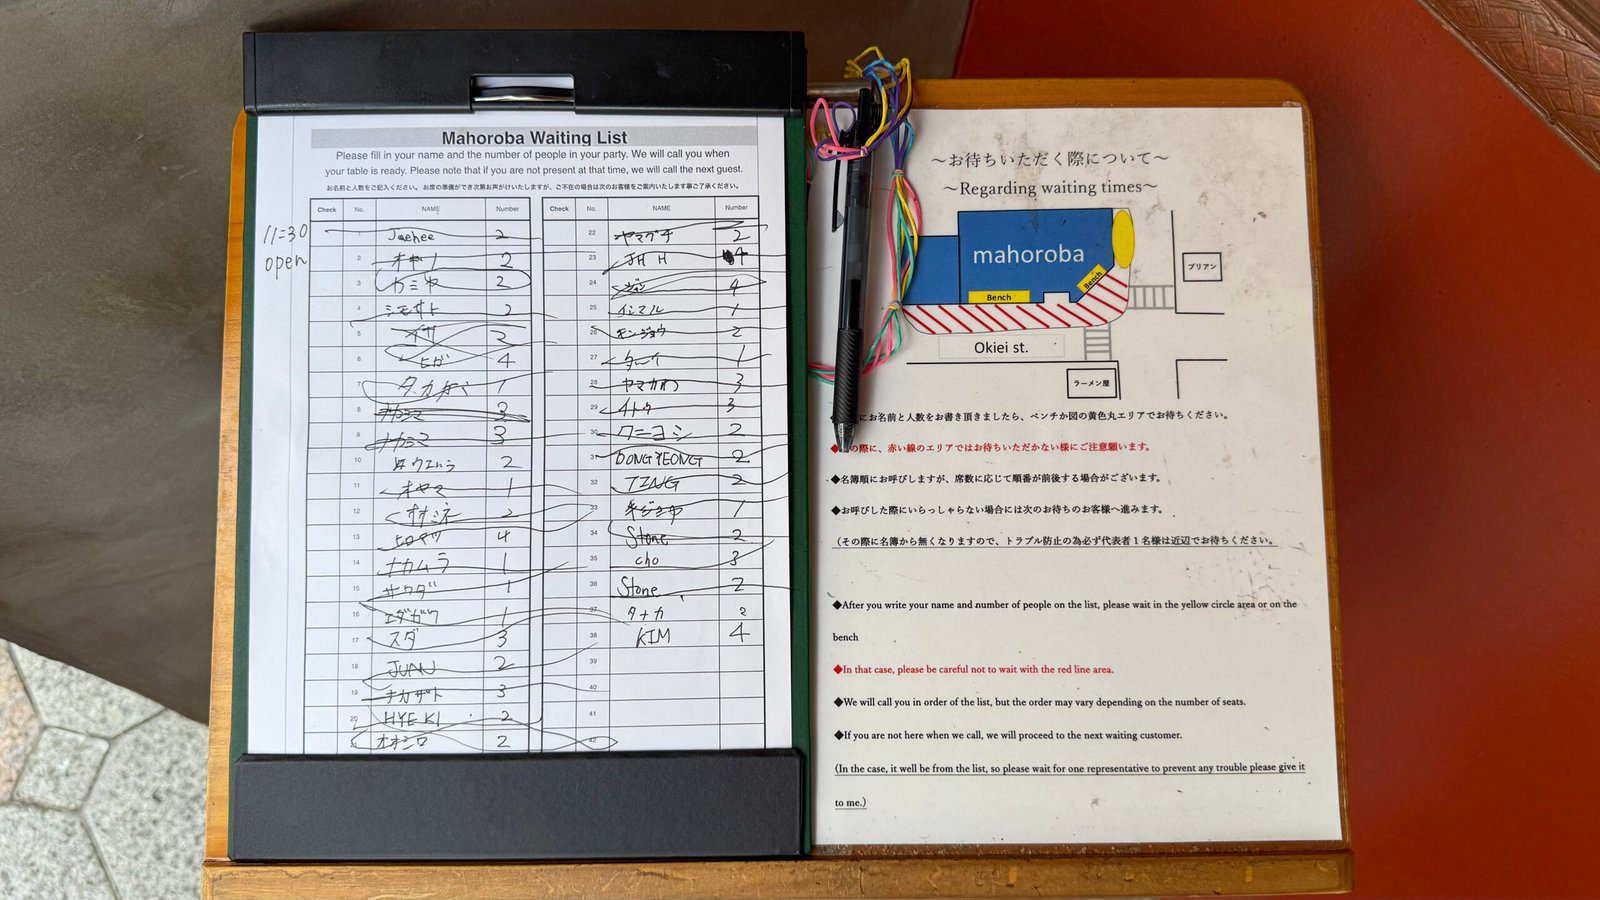 Mahoroba Waiting List
Please fill in your name and the number of people in your party. We will call you when
your table is ready. Please note that if you are not present at that time, we will call the next guest.
お名前と人数をご記入ください。お席の準備ができ次第お声がけいたしますが、ご不在の場合は次のお客様をご案内いたします事ご了承ください。
11:30
open
Check No. NAME Number
1 Jaehee 2
2 2
3 カミヤ 2
4 シモサト 2
5 2
6 ヒガ 4
7 1
8 ナカシマ 3
9 ナカシマ 3
10 2
11 オヤマ 1
12 オオミネ 2
13 4
14 ナカムラ 1
15 サワダ 1
16 エダガワ 1
17 スダ 3
18 JUNU 2
19 ナカザト 3
20 HYE KI 2
オオシロ 2
Check No. NAME Number
22 ヤマグチ 2
23 JH H 4
24 4
25 イシマル 1
26 2
27 1
28 3
29 イトウ 3
30 クニヨシ 2
31 DONGYEONG 2
32 TING 2
33 1
34 Stone 2
35 cho 3
36 Stone 2
37 タナカ 2
38 KIM 4
39
40
41
42
～お待ちいただく際について～
～Regarding waiting times～
mahoroba
Bench
Bench
ブリアン
Okiei st.
ラーメン屋
にお名前と人数をお書き頂きましたら、ベンチか図の黄色丸エリアでお待ちください。
◆の際に、赤い線のエリアではお待ちいただかない様にご注意願います。
◆名簿順にお呼びしますが、席数に応じて順番が前後する場合がございます。
◆お呼びした際にいらっしゃらない場合には次のお待ちのお客様へ進みます。
（その際に名簿から無くなりますので、トラブル防止の為必ず代表者１名様は近辺でお待ちください。
◆After you write your name and number of people on the list, please wait in the yellow circle area or on the
bench
◆In that case, please be careful not to wait with the red line area.
◆We will call you in order of the list, but the order may vary depending on the number of seats.
◆If you are not here when we call, we will proceed to the next waiting customer.
(In the case, it well be from the list, so please wait for one representative to prevent any trouble please give it
to me.)